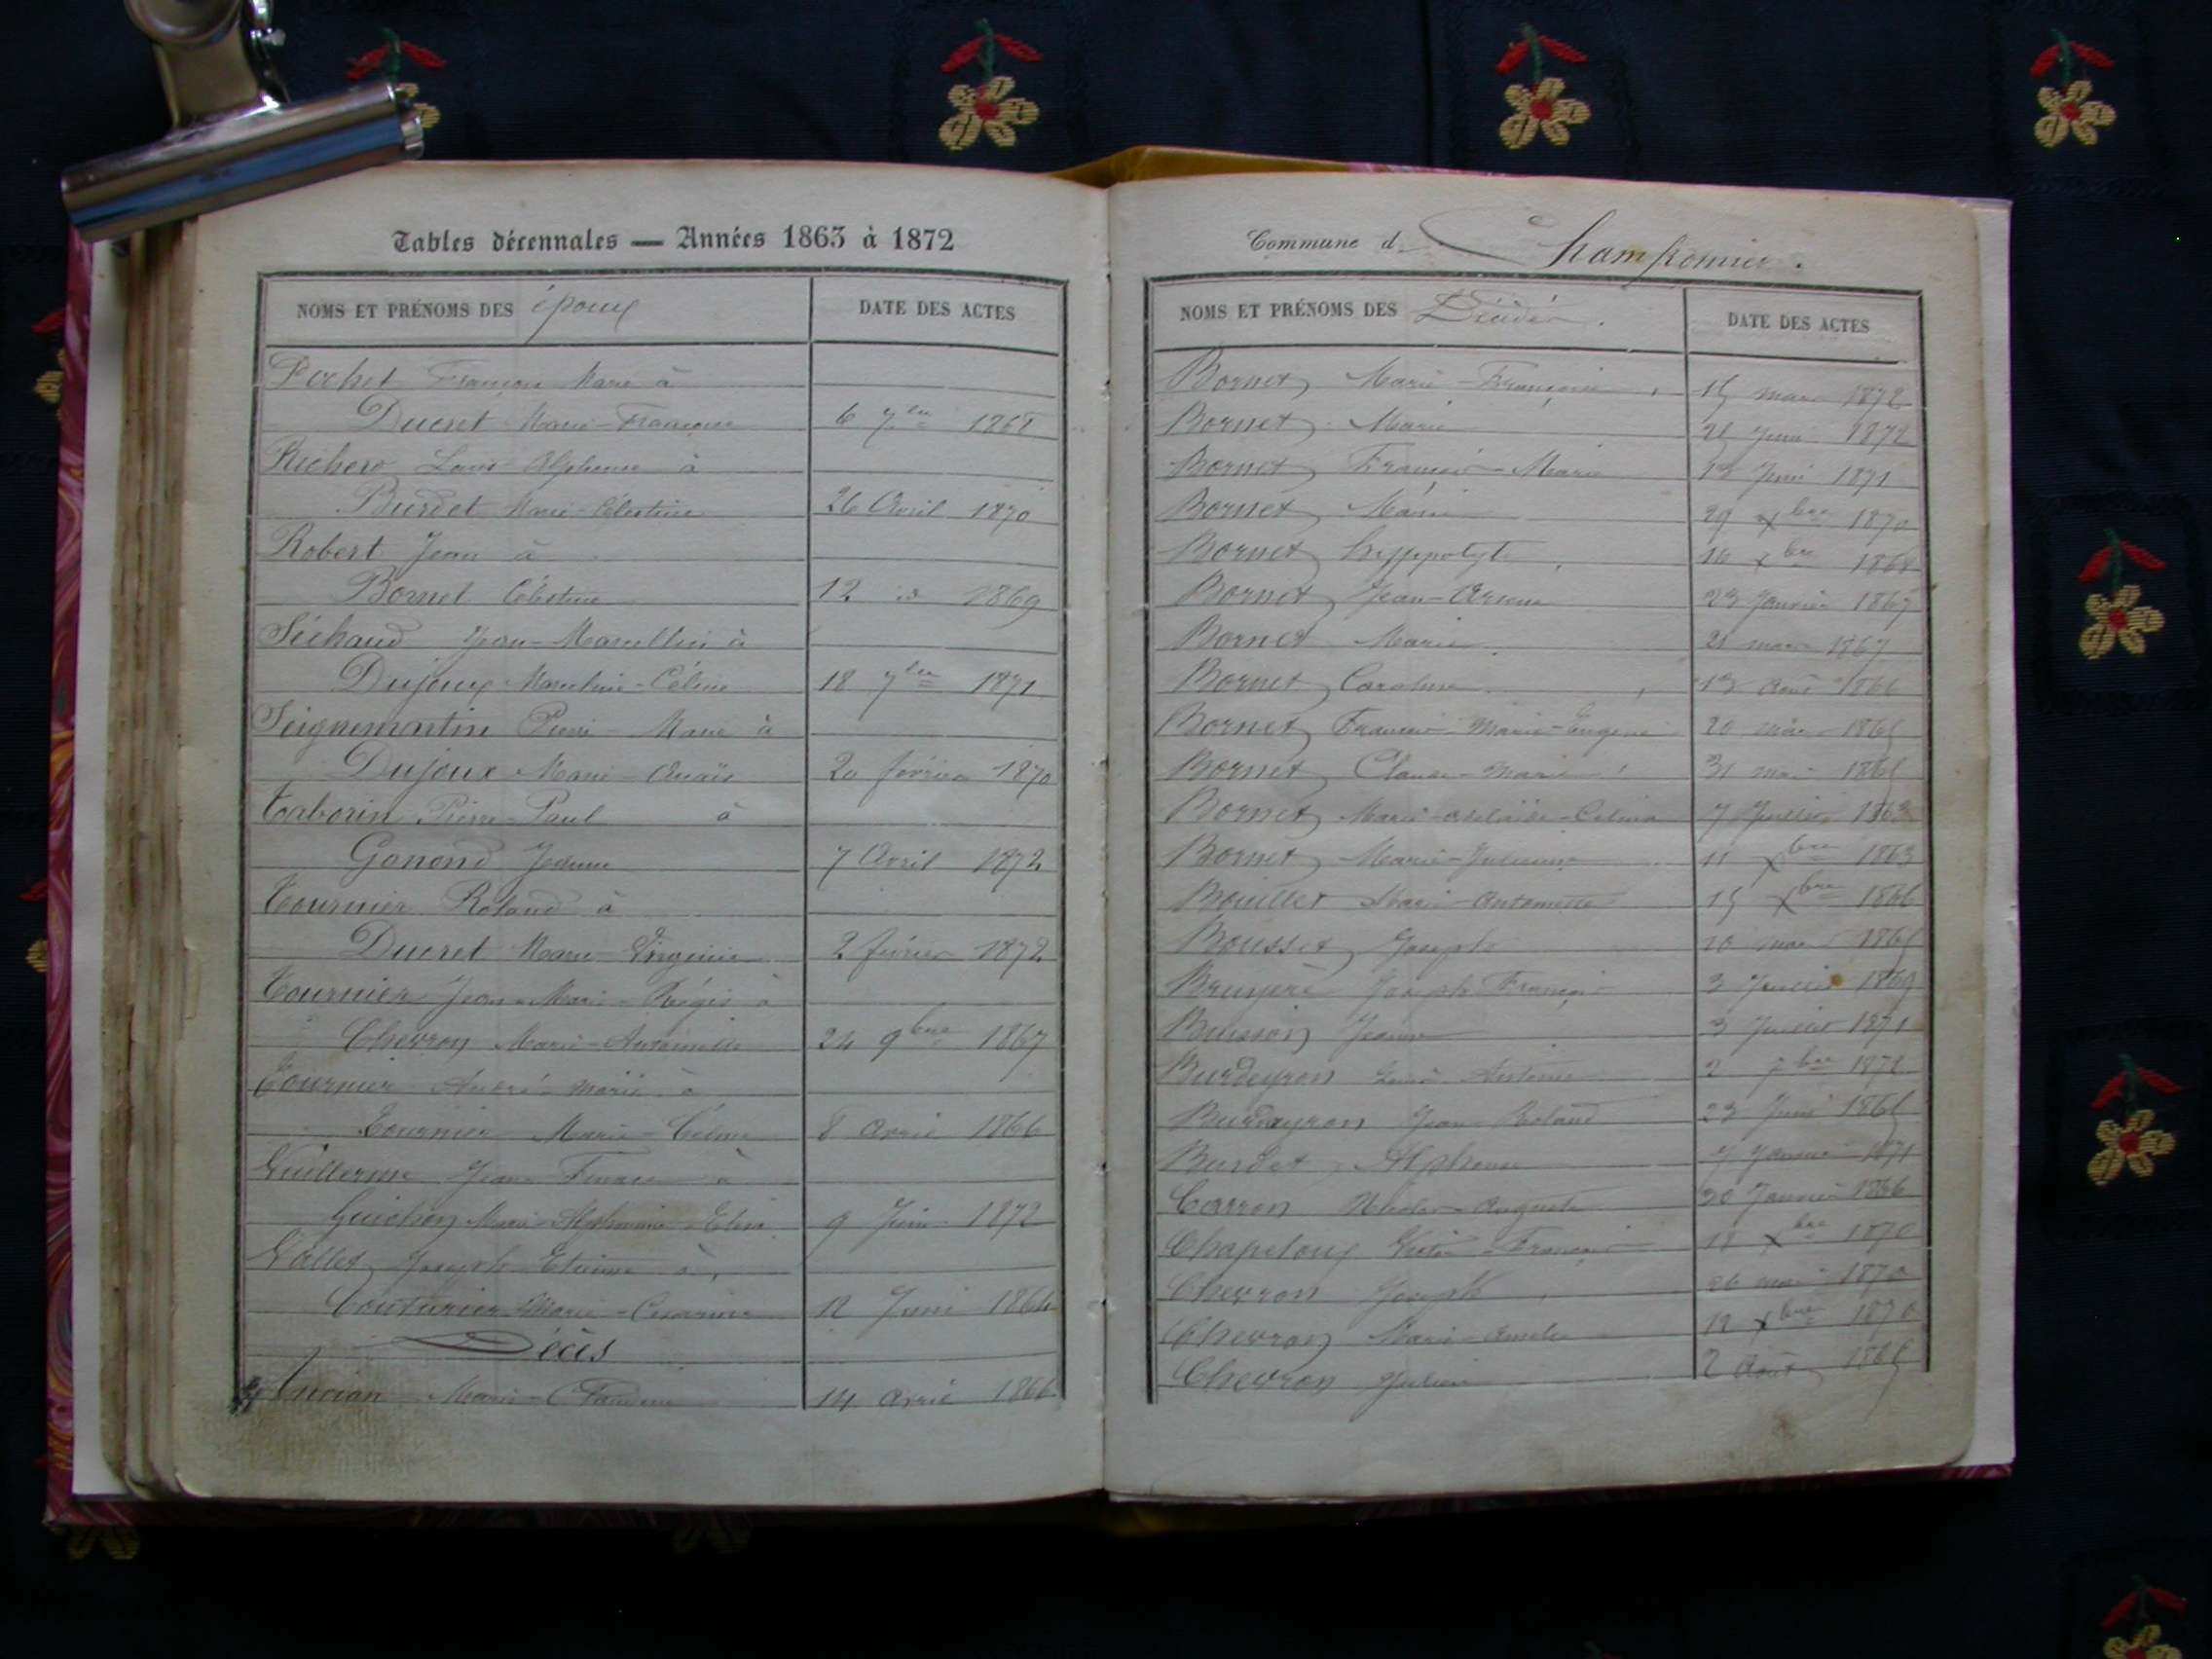 Tables décennales — Années 1863 à 1872
NOMS ET PRÉNOMS DES époux DATE DES ACTES
Pochet François Marie à
Ducret Marie-Françoise 6 7bre 1868
Richero Louis Alphonse à
Burdet Marie-Célestine 26 Avril 1870
Robert Jean à
Bornet Célestine 12 1869
Séchaud Jean-Marcellin à
Dujoux Célina 18 7bre 1871
Seignemartin Pierre-Marie à
Dujoux Marie-Anaïs 20 février 1870
Taborin Pierre-Paul à
Gonond Jeanne 7 Avril 1872
Tournier Roland à
Ducret Marie-Virginie 2 février 1872
Tournier Jean-Marie-Régis à
Chevron Marie-Antoinette 24 9bre 1867
Tournier André-Marie à
Tournier Marie-Célina 8 Avril 1866
Vuillerme Jean à
Guichon Marie 9 Juin 1872
Vallet Joseph-Etienne à
Couturier Marie 12 Juin 1864
Décès
Ancian Marie-Claudine 14 Avril 1866
Commune d Champfromier.
NOMS ET PRÉNOMS DES Décédés. DATE DES ACTES
Bornet Marie-Françoise 15 mars 1872
Bornet Marie Juin 1872
Bornet François-Marie 13 Juin 1871
Bornet Marie 29 xbre 1870
Bornet hyppolyte 16 xbre 1868
Bornet Jean 23 Janvier 1867
Bornet Marie 21 mars 1867
Bornet Caroline 13 Août 1866
Bornet François-Marie-Eugène 20 1865
Bornet Claude-Marie 31 mai 1865
Bornet Marie-adelaïde-Celina 7 Juillet 1863
Bornet Marie-Julienne 11 xbre 1863
Bouiller Marie-Antoinette 15 xbre 1866
Bousset Joseph 10 1865
Bruyère Joseph François 3 Juillet 1869
Buisson Jeanne 3 Juillet 1871
Burdeyron Louis Antoine 2 7bre 1872
Burdeyron Jean-Roland 23 Juin 1865
Burdet Alphonse 7 Janvier 1871
Carron Auguste 30 Janvier 1866
Chapeloux Victor-François 18 xbre 1870
Chevron Joseph 26 1870
Chevron Marie 12 xbre 1870
Chevron Julien 2 Août 1865